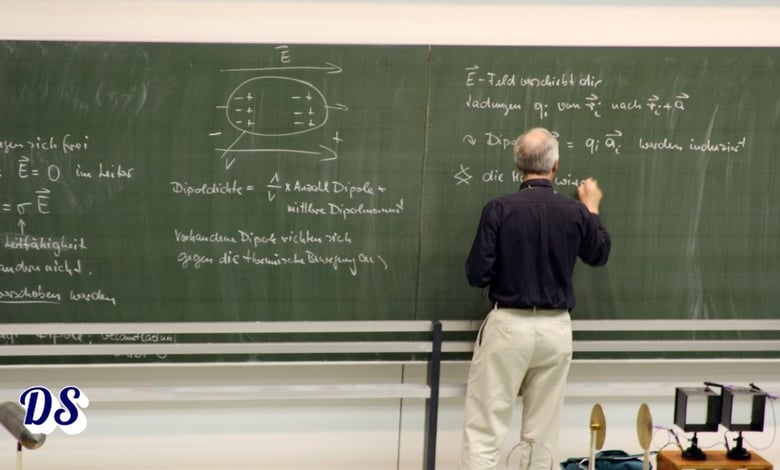 ...gen sich frei
E⃗ = 0 im Leiter
= σ E⃗
↑
Leitfähigkeit
andern nicht.
verschoben werden
Dipole,
E⃗
- + - +
- + - +
- + - +
- +
V
Dipoldichte = 1/V × Anzahl Dipole ×
mittlere Dipolmoment
Vorhandene Dipole richten sich
gegen die thermische Bewegung aus
E⃗-Feld verschiebt die
Ladungen qᵢ von r⃗ᵢ nach r⃗ᵢ + a⃗
↝ Dipo = qᵢ a⃗ᵢ werden induziert
die
DS